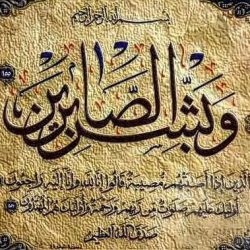 بسم الله الرحمن الرحيم
وَبَشِّرِ الصَّابِرِينَ ١٥٥
الذين اذا اصابتهم مصيبة قالوا انا لله وانا اليه راجعون
اولئك عليهم صلوات من ربهم ورحمة واولئك هم المهتدون
صدق الله العظيم